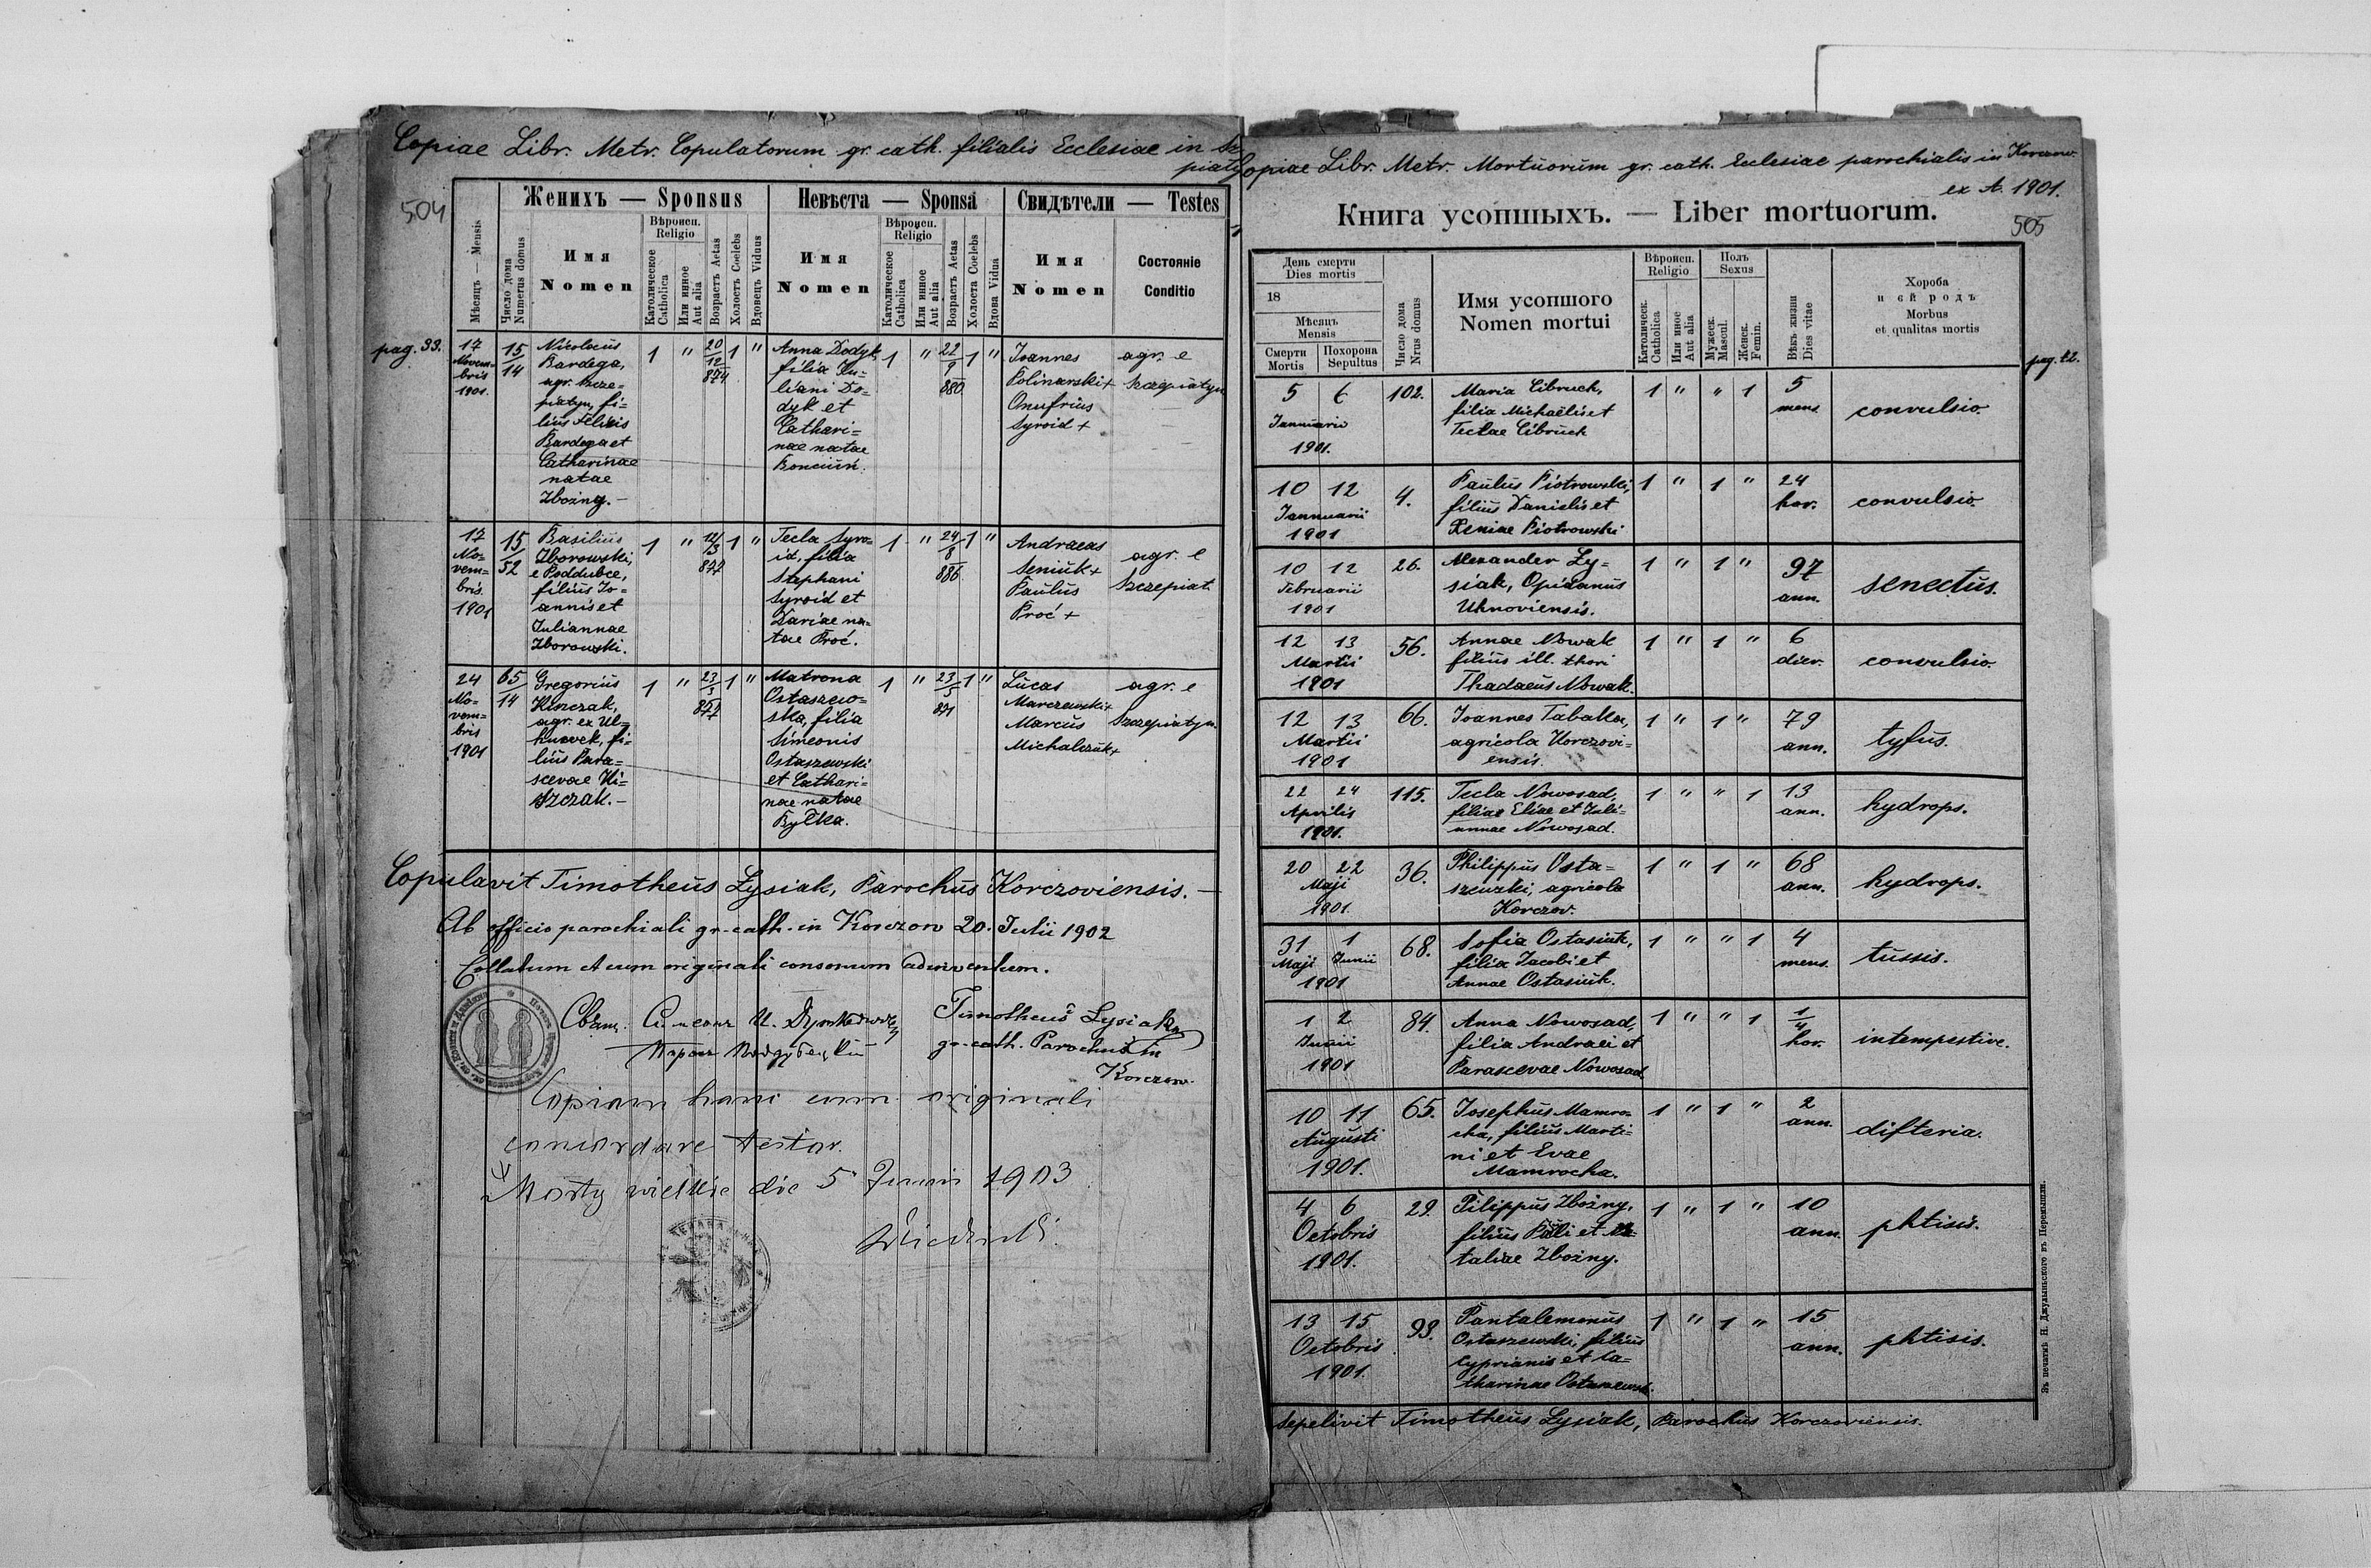 Copiae Libr. Metr. Copulatorum gr. cath. filialis Ecclesiae in Sz
piatyn
504
Женихъ — Sponsus
Невѣста — Sponsa
Свидѣтели — Testes
Мѣсяцъ — Mensis
Число дома
Numerus domus
Имя
Nomen
Вѣроисп.
Religio
Католическое
Catholica
Или инное
Aut alia
Возрастъ Aetas
Холостъ Coelebs
Вдовецъ Viduus
Имя
Nomen
Вѣроисп.
Religio
Католическое
Catholica
Или инное
Aut alia
Возрастъ Aetas
Холоста Coelebs
Вдова Vidua
Имя
Nomen
Состояніе
Conditio
pag. 33.
17
Novem=
bris
1901.
15
14
Nicolaus
Bardega,
agr. Szcze=
piatyn, fi=
lius Felicis
Bardega et
Catharinae
natae
Zbożny.–
1 " 20/12 874 1 "
Anna Dodyk
filia Ju=
liani Do=
dyk et
Cathari=
nae natae
Bonciuń.
1 " 22/9 880 1 "
Joannes
Polinarski+
Onufrius
Syroid +
agr. e
Szczepiatyn
17
No=
vem=
bris
1901
15
52
Basilius
Zborowski,
e Poddubce,
filius Jo=
annis et
Juliannae
Zborowski.
1 " 877 1 "
Tecla Syro=
id, filia
Stephani
Syroid et
Dariae na=
tae Proć.
1 " 24/8 886 1 "
Andraeas
Seniuk+
Paulus
Proć +
agr. e
Szczepiat.
24
No=
vem=
bris
1901
65
14
Gregorius
Kinczak,
lius Para=
scevae Ki=
szczak.–
1 " 877 1 "
Matrona
Ostaszew=
ska, filia
Simeonis
Ostaszewski
et Cathari=
nae natae
Byłka.
1 " 871 1 "
Lucas
Marczewski+
Marcus
Michalczuk+
agr. e
Szczepiatyn.
Copulavit Timotheus Łysiak, Parochus Korczoviensis.–
Ab officio parochiali gr-cath. in Korczow 20. Julii 1902
Collatum et cum originali consonum adinventum.
Timotheus Łysiak
gr-cath. Parochus in
Korczow.
Copiam hanc cum originali
concordare testor.
Mosty wielkie die 5 Junii 1903
Copiae Libr. Metr. Mortuorum gr. cath. Ecclesiae parochialis in Korczow
ex A. 1901.
Книга усопшыхъ. — Liber mortuorum.
505
День смерти
Dies mortis
18
Мѣсяцъ
Mensis
Смерти
Mortis
Похорона
Sepultus
Число дома
Nrus domus
Имя усопшого
Nomen mortui
Вѣроисп.
Religio
Католическ.
Catholica
Или иное
Aut alia
Полъ
Sexus
Мужеск.
Mascul.
Женск.
Femin.
Вѣкъ жизни
Dies vitae
Хороба
и єй родъ
Morbus
et qualitas mortis
pag. 12.
5 6
Januarii
1901.
102.
Maria Cibruch,
filia Michaëlis et
Teclae Cibruch
1 " " 1
5
mens.
convulsio.
10 12
Jannuarii
1901
4.
Paulus Piotrowski,
filius Danielis et
Xeniae Piotrowski
1 " 1 "
24
hor.
convulsio.
10 12
Februarii
1901
26.
Alexander Ły=
siak, Opidanus
Uhnoviensis.
1 " 1 "
97
ann.
senectus.
12 13
Martii
1901
56.
Annae Nowak
filius ill. thori
Thadaeus Nowak.
1 " 1 "
6
dier.
convulsio.
12 13
Martii
1901
66.
Joannes Tabaka,
agricola Korczovi=
ensis.
1 " 1 "
79
ann.
tyfus.
22 24
Aprilis
1901.
115.
Tecla Nowosad,
filiae Eliae et Juli=
annae Nowosad.
1 " " 1
13
ann.
hydrops.
20 22
Maji
1901.
36.
Philippus Osta=
szewski, agricola
Korczov.
1 " 1 "
68
ann.
hydrops.
31 1
Maji Junii
1901
68.
Sofia Ostasiuk,
filia Jacobi et
Annae Ostasiuk.
1 " " 1
4
mens.
tussis.
1 2
Junii
1901
84.
Anna Nowosad,
filia Andraei et
Parascevae Nowosad.
1 " " 1
1/4
hor.
intempestive.
10 11
Augusti
1901.
65.
Josephus Mamro=
cha, filius Marti=
ni et Evae
Mamrocha.
1 " 1 "
2
ann.
difteria.
4 6
Octobris
1901.
29.
Filippus Zbożny,
filius Pauli et Na=
taliae Zbożny.
1 " 1 "
10
ann.
phtisis.
13 15
Octobris
1901.
93.
Pantalemonus
Ostaszewski, filius
Cyprianis et Ca=
tharinae Ostaszewski.
1 " 1 "
15
ann.
phtisis.
Sepelivit Timotheus Łysiak, Parochus Korczoviensis.
Зъ печатнѣ Н. Джулыньского въ Перемышли.